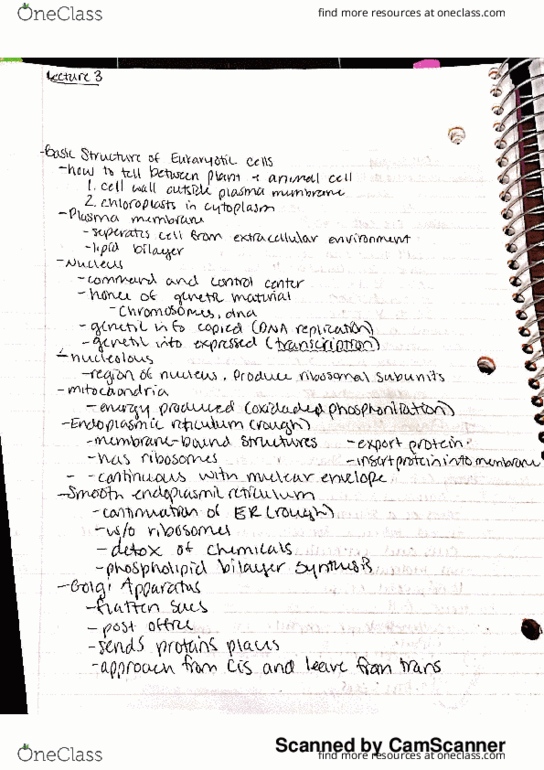 OneClass
find more resources at oneclass.com
Lecture 3
-Basic Structure of Eukaryotic cells
-how to tell between plant + animal cell
1. cell wall outside plasma membrane
2. chloroplasts in cytoplasm
-Plasma membrane
-seperates cell from extracellular environment
-lipid bilayer
-Nucleus
-command and control center
-home of genetic material
-chromosomes, dna
-genetic info copied (DNA replication)
-genetic info expressed (transcription)
-nucleolous
-region of nucleus, produce ribosomal subunits
-mitochondria
-energy produced (oxidaded phosphorilation)
-Endoplasmic reticulum (rough)
-membrane-bound structures -export protein
-has ribosomes -insert protein into membrane
-continuous with nuclear envelope
-Smooth endoplasmic reticulum
-continuation of ER (rough)
-w/o ribosomes
-detox of chemicals
-phospholipid bilayer synthesis
-Golgi Apparatus
-flatten sacs
-post office
-sends proteins places
-approach from cis and leave from trans
Scanned by CamScanner
OneClass
find more resources at oneclass.com